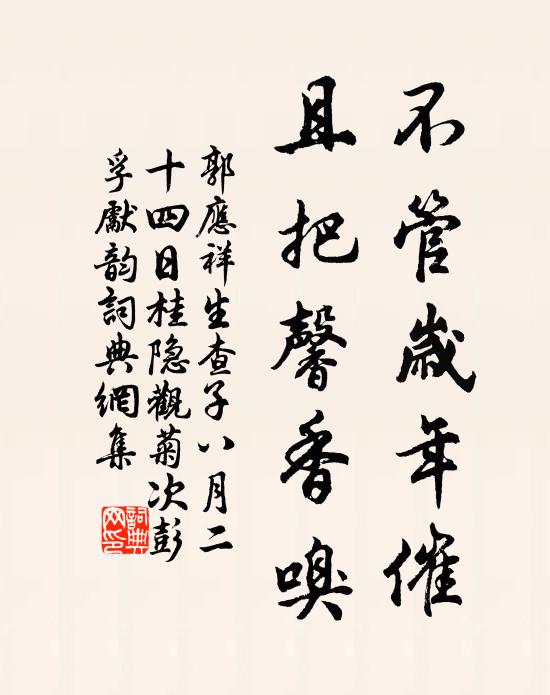 不管歲年催
且把馨香嗅
郭應祥生查子八月二
十四日桂隐觀菊次彭
孚獻韵詞典網集
詞典
网印